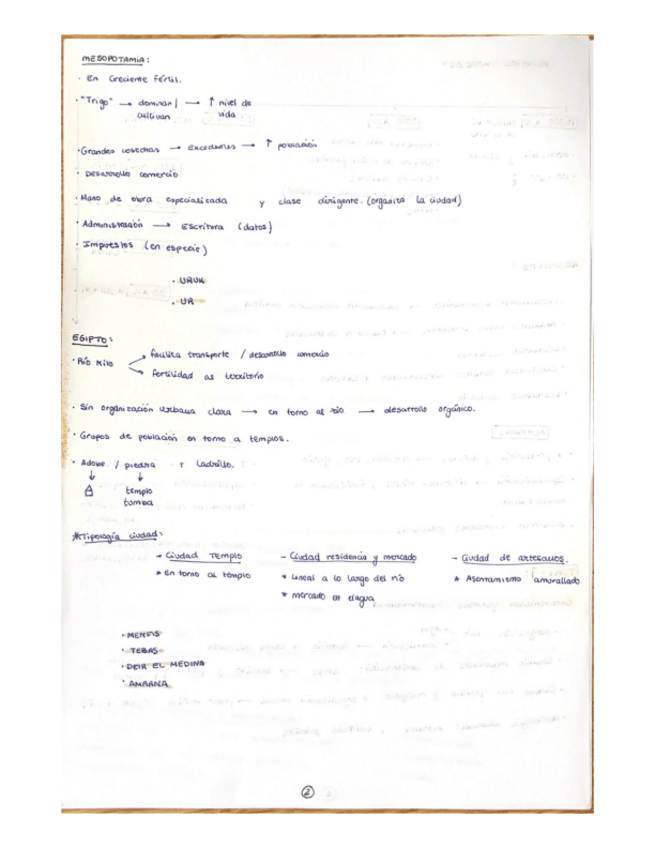 MESOPOTAMIA:
· En Creciente fértil.
· "Trigo" → dominan / → ↑ nivel de
cultivan vida
· Grandes cosechas → Excedentes → ↑ población
· Desarrollo comercio
· Mano de obra especializada y clase dirigente. (organiza la ciudad)
· Administración → Escritura (datos)
· Impuestos (en especie)
· URUK
· UR
EGIPTO:
· Río Nilo → facilita transporte / desarrollo comercio
→ fertilidad al territorio
· Sin organización urbana clara → en torno al río → desarrollo orgánico.
· Grupos de población en torno a templos.
· Adobe / piedra ladrillo.
↓ ↓
templo
tumba
*Tipología ciudad:
- Ciudad Templo - Ciudad residencia y mercado - Ciudad de artesanos.
* En torno al templo * Lineal a lo largo del río * Asentamiento amurallado
* mercado en el agua
· MENFIS
· TEBAS
· DEIR EL MEDINA
· AMARNA
2